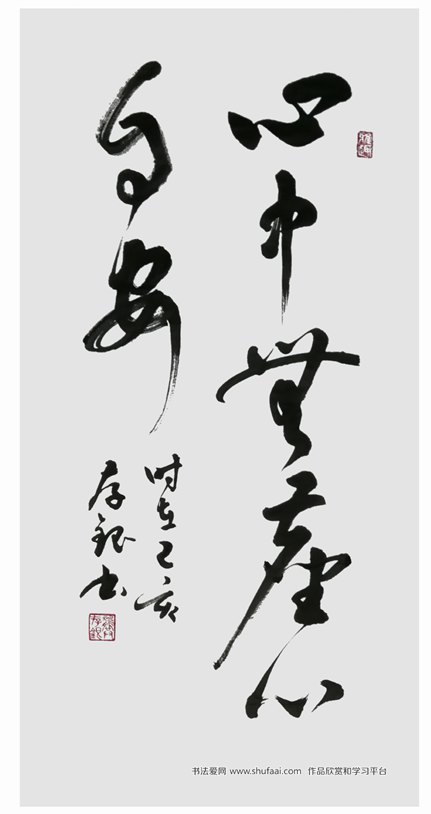 心中無塵心
自安
时在己亥
存銀书
书法爱网 www.shufaai.com 作品欣赏和学习平台